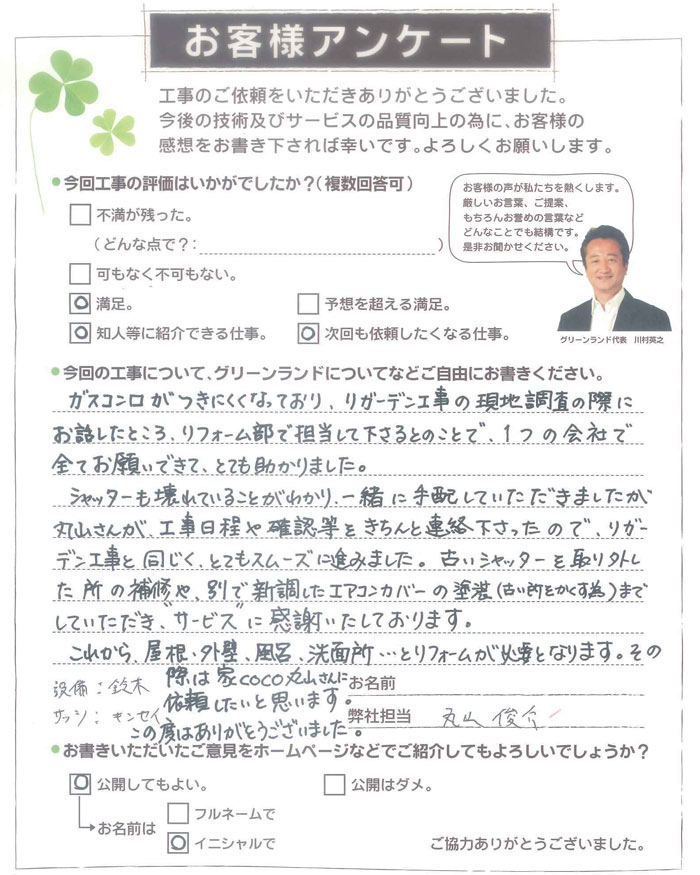 お客様アンケート
工事のご依頼をいただきありがとうございました。
今後の技術及びサービスの品質向上の為に、お客様の
感想をお書き下されば幸いです。よろしくお願いします。
●今回工事の評価はいかがでしたか?(複数回答可)
お客様の声が私たちを熱くします。
厳しいお言葉、ご提案、
もちろんお誉めの言葉など
どんなことでも結構です。
是非お聞かせください。
不満が残った。
(どんな点で?:)
可もなく不可もない。
満足。
予想を超える満足。
知人等に紹介できる仕事。
次回も依頼したくなる仕事。
グリーンランド代表 川村英之
●今回の工事について、グリーンランドについてなどご自由にお書きください。
ガスコンロがつきにくくなっており、リガーデン工事の現地調査の際に
お話したところ、リフォーム部で担当して下さるとのことで、1つの会社で
全てお願いできて、とても助かりました。
シャッターも壊れていることがわかり、一緒に手配していただきましたが
丸山さんが、工事日程や確認等をきちんと連絡下さったので、リガー
デン工事と同じく、とてもスムーズに進みました。古いシャッターを取り外し
た所の補修や、別で新調したエアコンカバーの塗装(古い所をかくす為)まで
していただき、"サービス"に感謝いたしております。
これから、屋根・外壁、風呂、洗面所…とリフォームが必要となります。その
際は家COCO丸山さんに
依頼したいと思います。
この度はありがとうございました。
設備:鈴木
サッシ:キンセイ
お名前
弊社担当 丸山 俊介
●お書きいただいたご意見をホームページなどでご紹介してもよろしいでしょうか?
公開してもよい。
公開はダメ。
お名前は
フルネームで
イニシャルで
ご協力ありがとうございました。